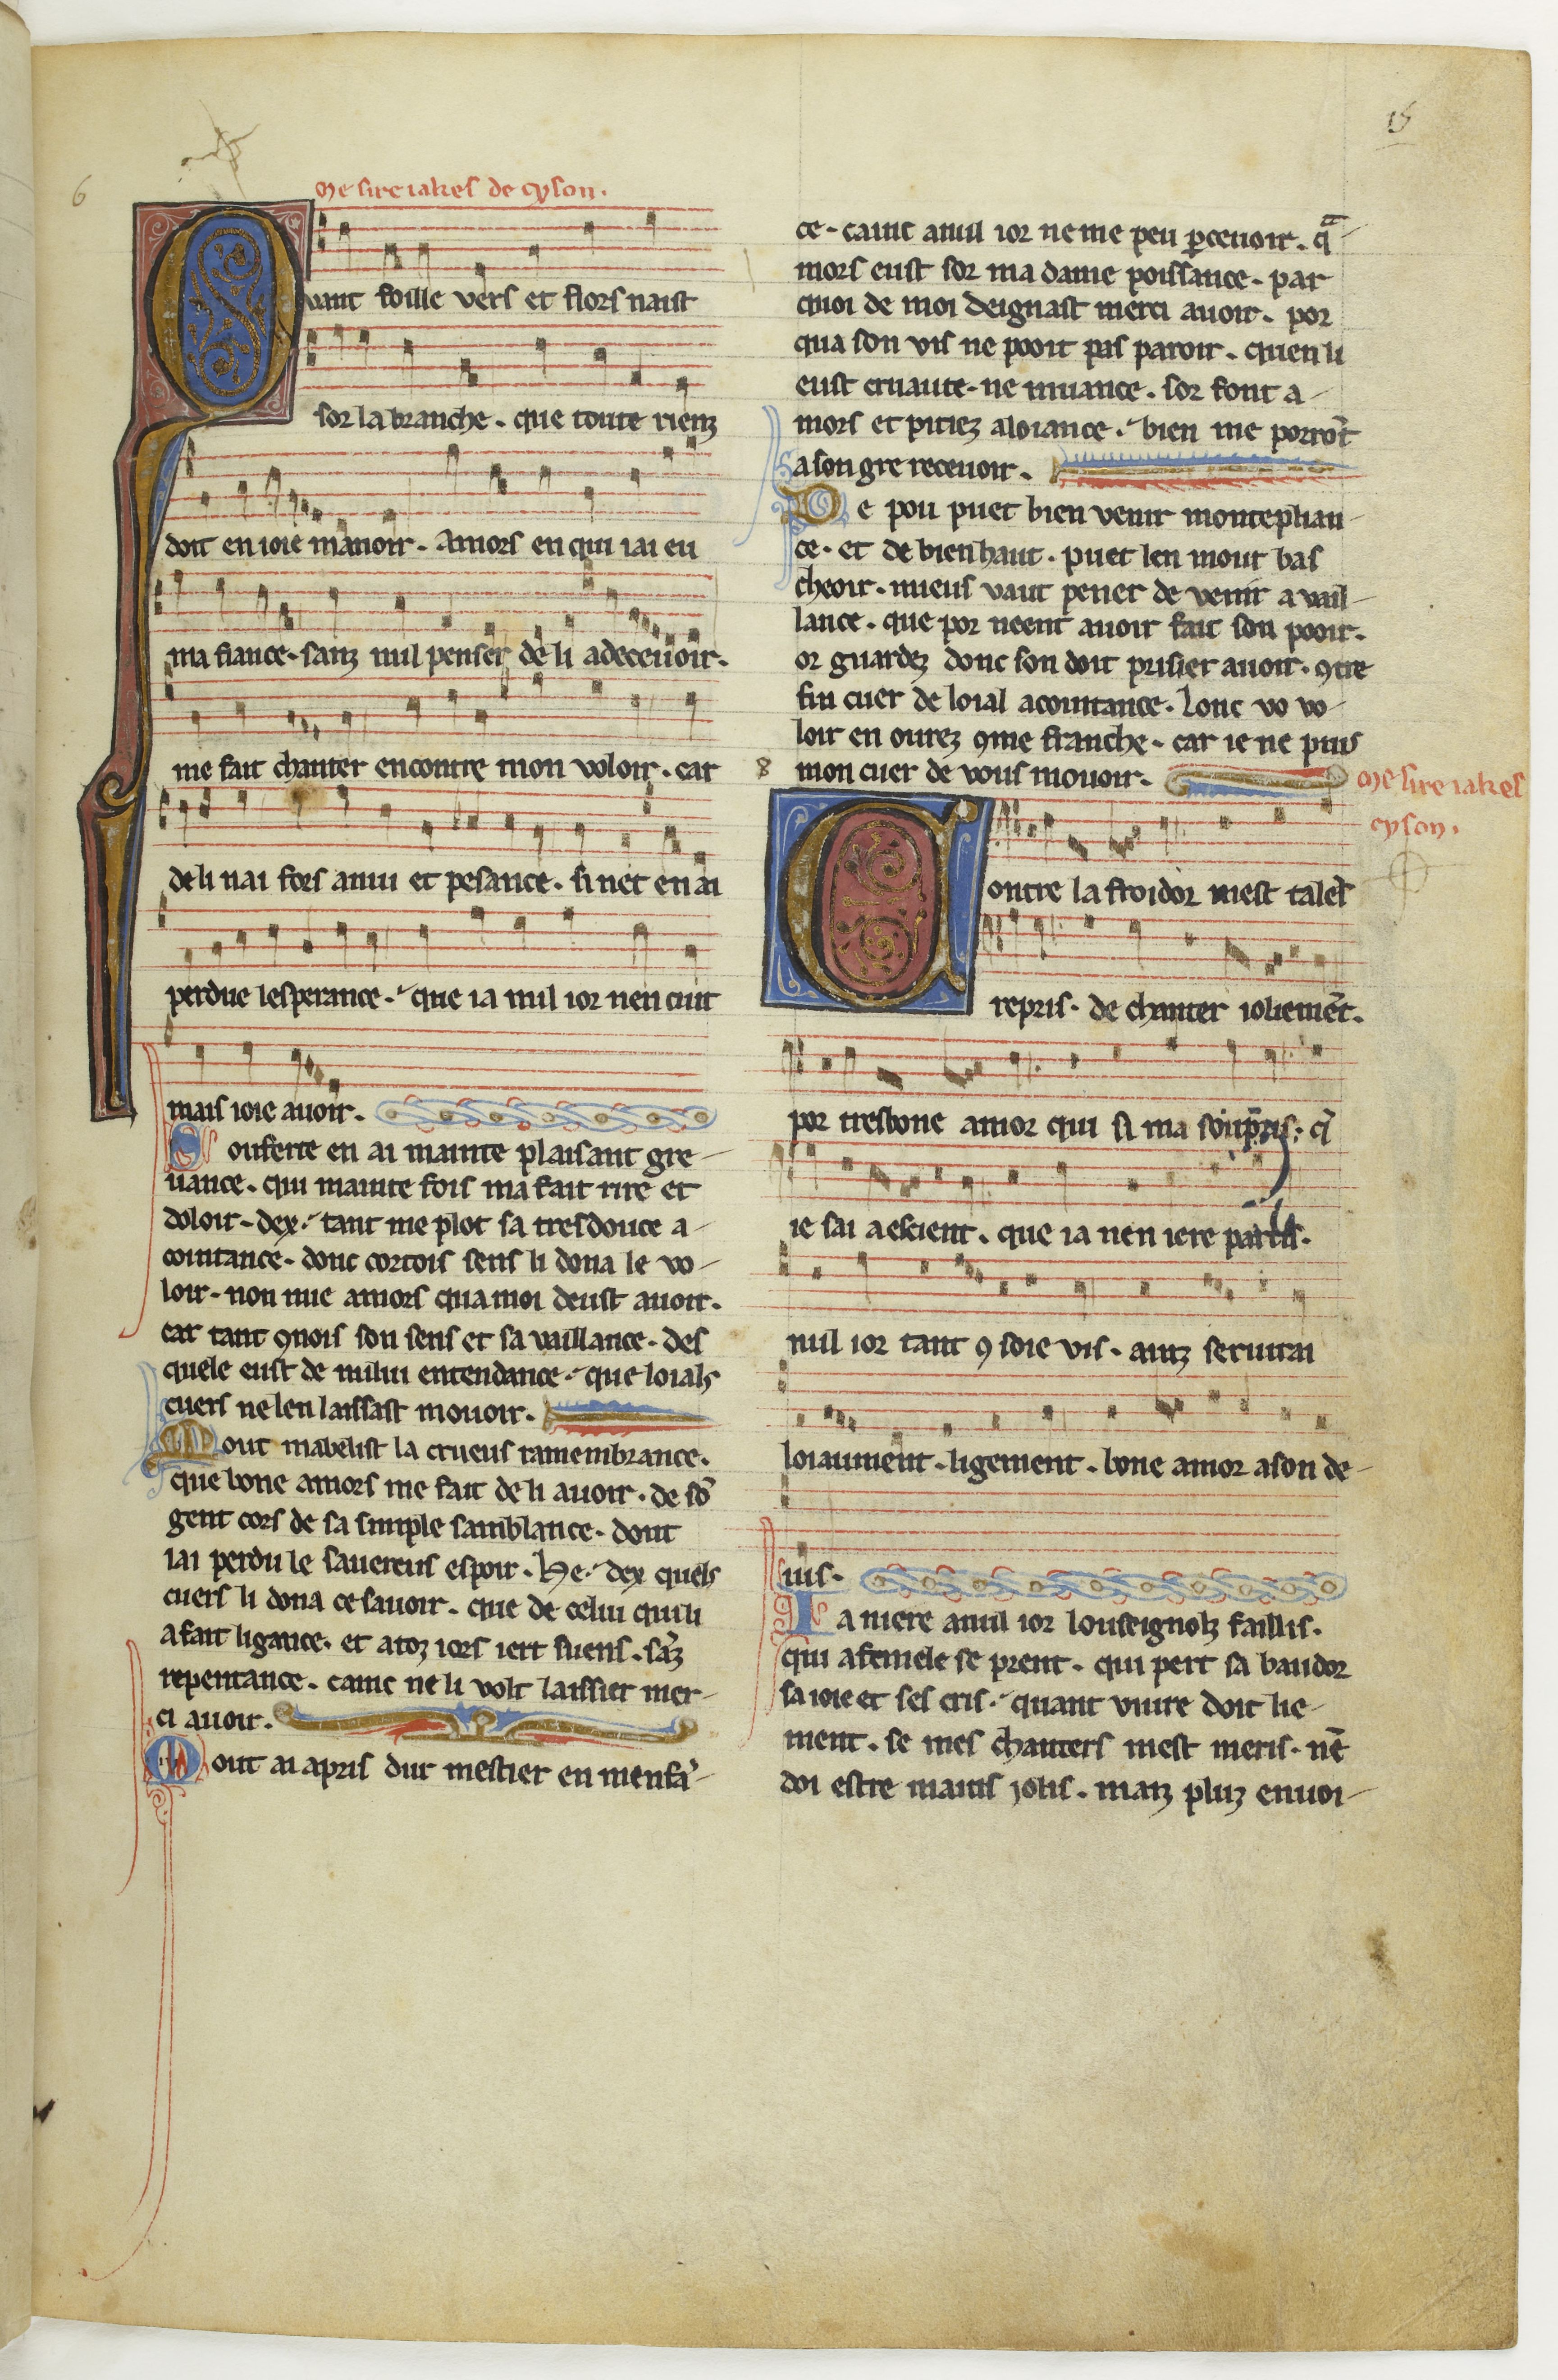 15
6
Me sire iakes de cyson.
Quant foille vers et flors naist
sor la branche. que toute rienz
doit en ioie manoir. Amors en qui iai eu
ma fiance. sanz nul penser de li a decevoir.
me fait chanter encontre mon voloir. car
de li nai fors anui et pesance. si net en ai
perdue lesperance. que ia nul ior nen cuit
mais ioie avoir.
Souferte en ai mainte plaisant gre-
vance. qui mainte fois ma fait rire et
doloir. dex. tant me plot sa tres douce a-
cointance. donc cortois sens li dona le vo-
loir. non nue amors qua moi deust avoir.
car tant ꝯnois son sens et sa vaillance. des
quele eust de nului entendance. que loials
cuers ne len laissast movoir.
Mout mabelist la crueus ramembrance.
que bone amors me fait de li avoir. de sõ
gent cors de sa simple samblance. dont
iai perdu le savereus espoir. He. dex quels
cuers li dona ce savoir. que de celui qui li
a fait ligance. et a toz iors iert suens. sãz
repentance. cainc ne li volt laissier mer-
ci avoir.
Mout ai apris dur mestier en menfã-
ce. cainc a nul ior ne me peu ꝑcevoir. q̃
mors eust sor ma dame poissance. par
quoi de moi deignast merci avoir. por
qua son vis ne pooit pas paroir. quen li
eust cruaute. ne muance. sor font a-
mors et pitiez aloiance. bien me porrõt
a son gre recevoir.
De pou puet bien venir monteplian-
ce. et de bien haut. puet len mout bas
cheoir. mieus vaut pener de venir a vail-
lance. que por neent avoir fait son pooir.
or guardez donc son doit prisier avoir. ꝯtre
fin cuer de loial acointance. Lonc vo vo-
loir en ourez ꝯme franche. car ie ne puis
8 mon cuer de vous movoir.
Me sire iakes
cyson.
Contre la froidor mest talẽt
repris. de chanter ioliemẽt.
por tres bone amor qui si ma soupris. q̃
ie sai a escient. que ia nen iere partis.
nul ior tant ꝯ soie vis. ainz servirai
loiaument. ligement. bone amor a son de-
vis.
La niere a nul ior louseignolz faillis.
qui a femele se prent. qui pert sa baudor
sa ioie et ses cris. quant vivre doit lie-
ment. se mes chanters mest meris. nẽ
doi estre mains iolis. maiz pluz envoi-